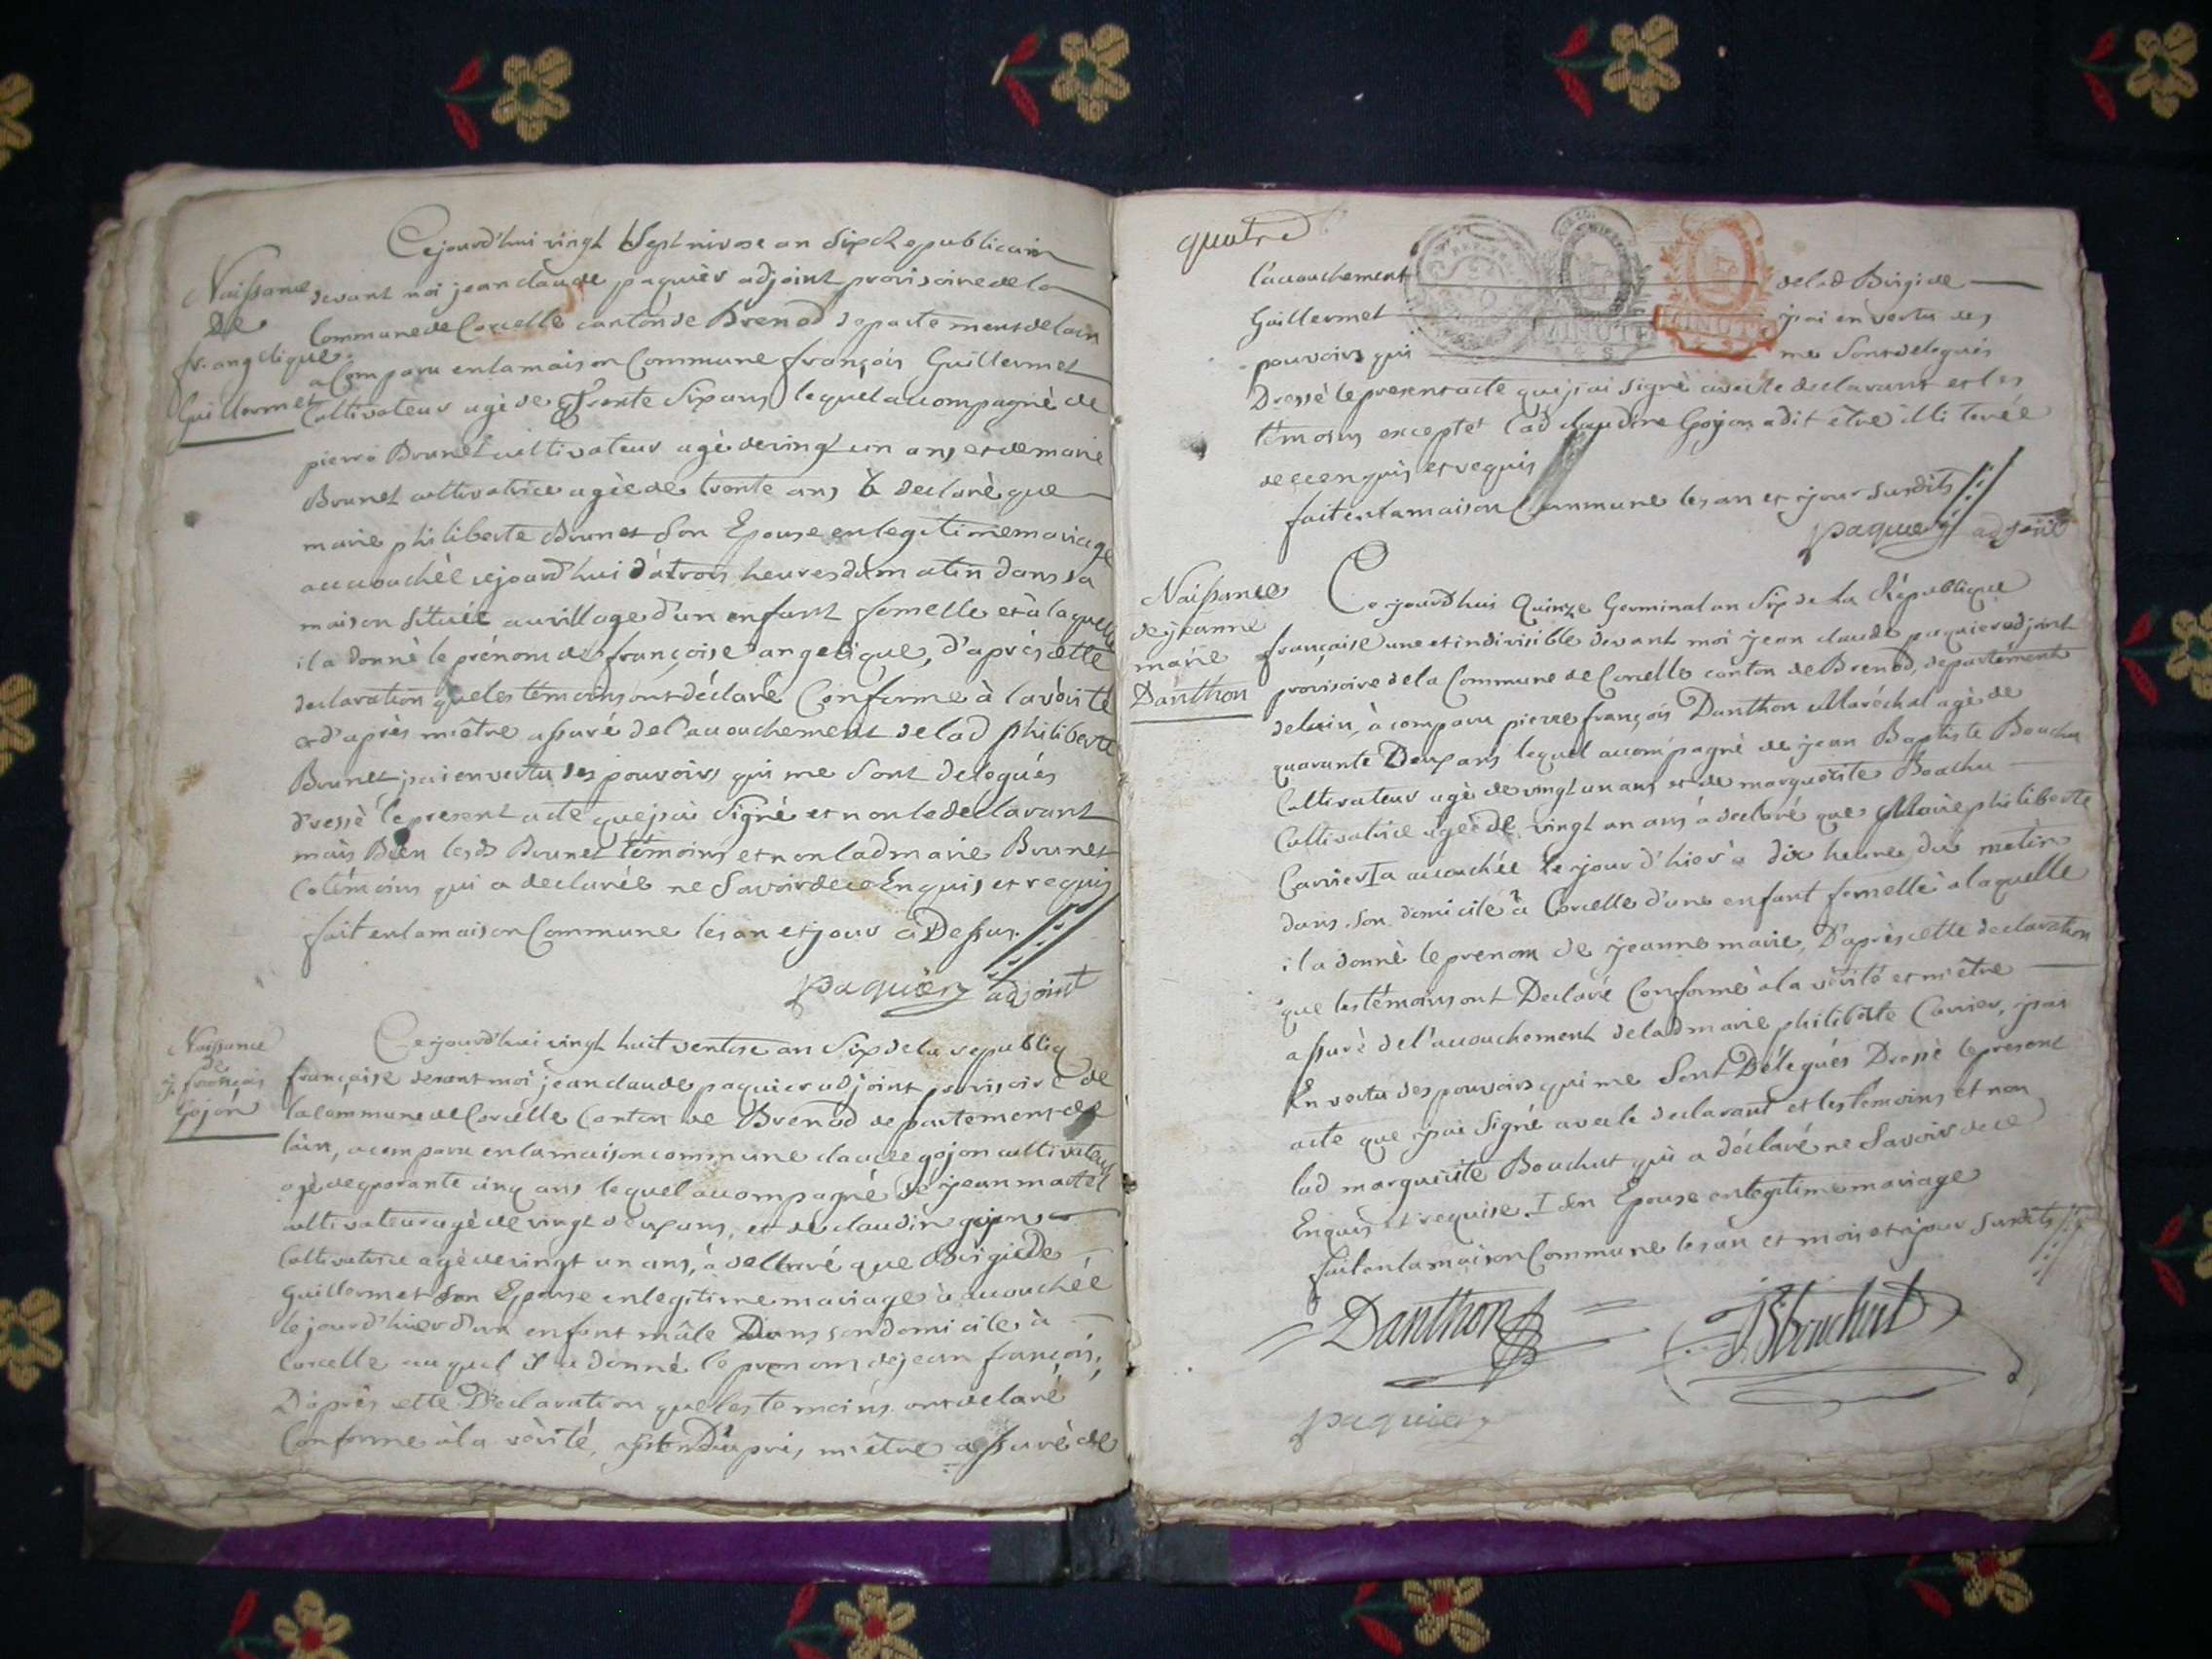 Cejourd'hui vingt Sept nivose an Six Republicain
Naissance
de
fr. angelique
Guillermet
devant moi jean claude paquier adjoint provisoire de la
Commune de Corcelle canton de Brenod departement de lain
a Comparu en la maison Commune françois Guillermet
Cultivateur agé de Trente Six ans lequel accompagné de
pierre Brunet cultivateur agé de vingt un ans et de marie
Brunet cultivatrice agée de trente ans à declaré que
marie philiberte Brunet Son Epouse en legitime mariage
accouchée cejourd'hui à trois heures du matin dans sa
maison située au village d'un enfant femelle et à laquelle
il a donné le prénom de françoise angelique, d'après cette
declaration que les témoins ont déclaré Conforme à la vérité
et d'après m'être assuré de l'accouchement de lad philiberte
Brunet, jai en vertu des pouvoirs qui me Sont delegués
dressé le present acte que jai Signé et non le declarant
mais Bien lesd Brunet témoins et non lad marie Brunet
Cotémoins qui a declarée ne Savoir de ce Enquis et requis
fait en la maison Commune les an et jour ci Dessus.
paquier adjoint
Naissance
de
J. françois
Gojon
Cejourd'hui vingt huit ventose an Six de la republiq
française devant moi jean claude paquier adjoint provisoire de
la Commune de Corcelle Canton de Brenod departement de
lain, a comparu en la maison commune claude gojon cultivateur
agé de quarante cinq ans lequel accompagné de jean martel
cultivateur agé de vingt deux ans, et de claudine gojon
Cultivatrice agée de vingt un ans, à declaré que Brigide
Guillermet Son Epouse en legitime mariage à accouchée
le jour d'hier d'un enfant mâle Dans son domicile à
Corcelle auquel il a donné le prenom de jean françois,
D'après cette Declaration que les temoins ont declaré
Conforme à la vérité, D'après m'être assuré de
quatre
l'accouchement de lad Brigide
Guillermet jai en vertu des
pouvoirs qui me Sont delegués
MINUTE
MINUTE
Dressé le present acte que jai Signé avec le declarant et les
témoins excepté lad claudine Gojon a dit être illiterée
de ce enquis et requis
fait en la maison Commune les an et jour susdits
paquier adjoint
Naissance
de jeanne
marie
Danthon
Cejourd'hui Quinze Germinal an Six de La République
française une et indivisible devant moi jean claude paquier adjoint
provisoire de la Commune de Corcelle canton de Brenod, departement
de lain, à comparu pierre françois Danthon Maréchal agé de
quarante Deux ans lequel accompagné de jean Baptiste Bouchu
Cultivateur agé de vingt un ans et de marguerite Bouchu
Cultivatrice agée de vingt un ans à declaré que Marie philiberte
Carrier I a accouchée le jour d'hier à dix heures du matin
dans son domicile à Corcelle d'une enfant femelle à laquelle
il a donné le prenom de jeanne marie, D'après cette declaration
que les témoins ont Declaré Conforme à la vérité et m'être
assuré de l'accouchement de lad marie philiberte Carrier, jai
En vertu des pouvoirs qui me Sont Délegués Dressé le present
acte que jai Signé avec le declarant et les temoins et non
lad marguerite Bouchut qui a déclaré ne Savoir de ce
Enquis et requise. I Son Epouse en legitime mariage
fait en la maison Commune les an et mois et jour Susdits
Danthon
JBBouchut
paquier